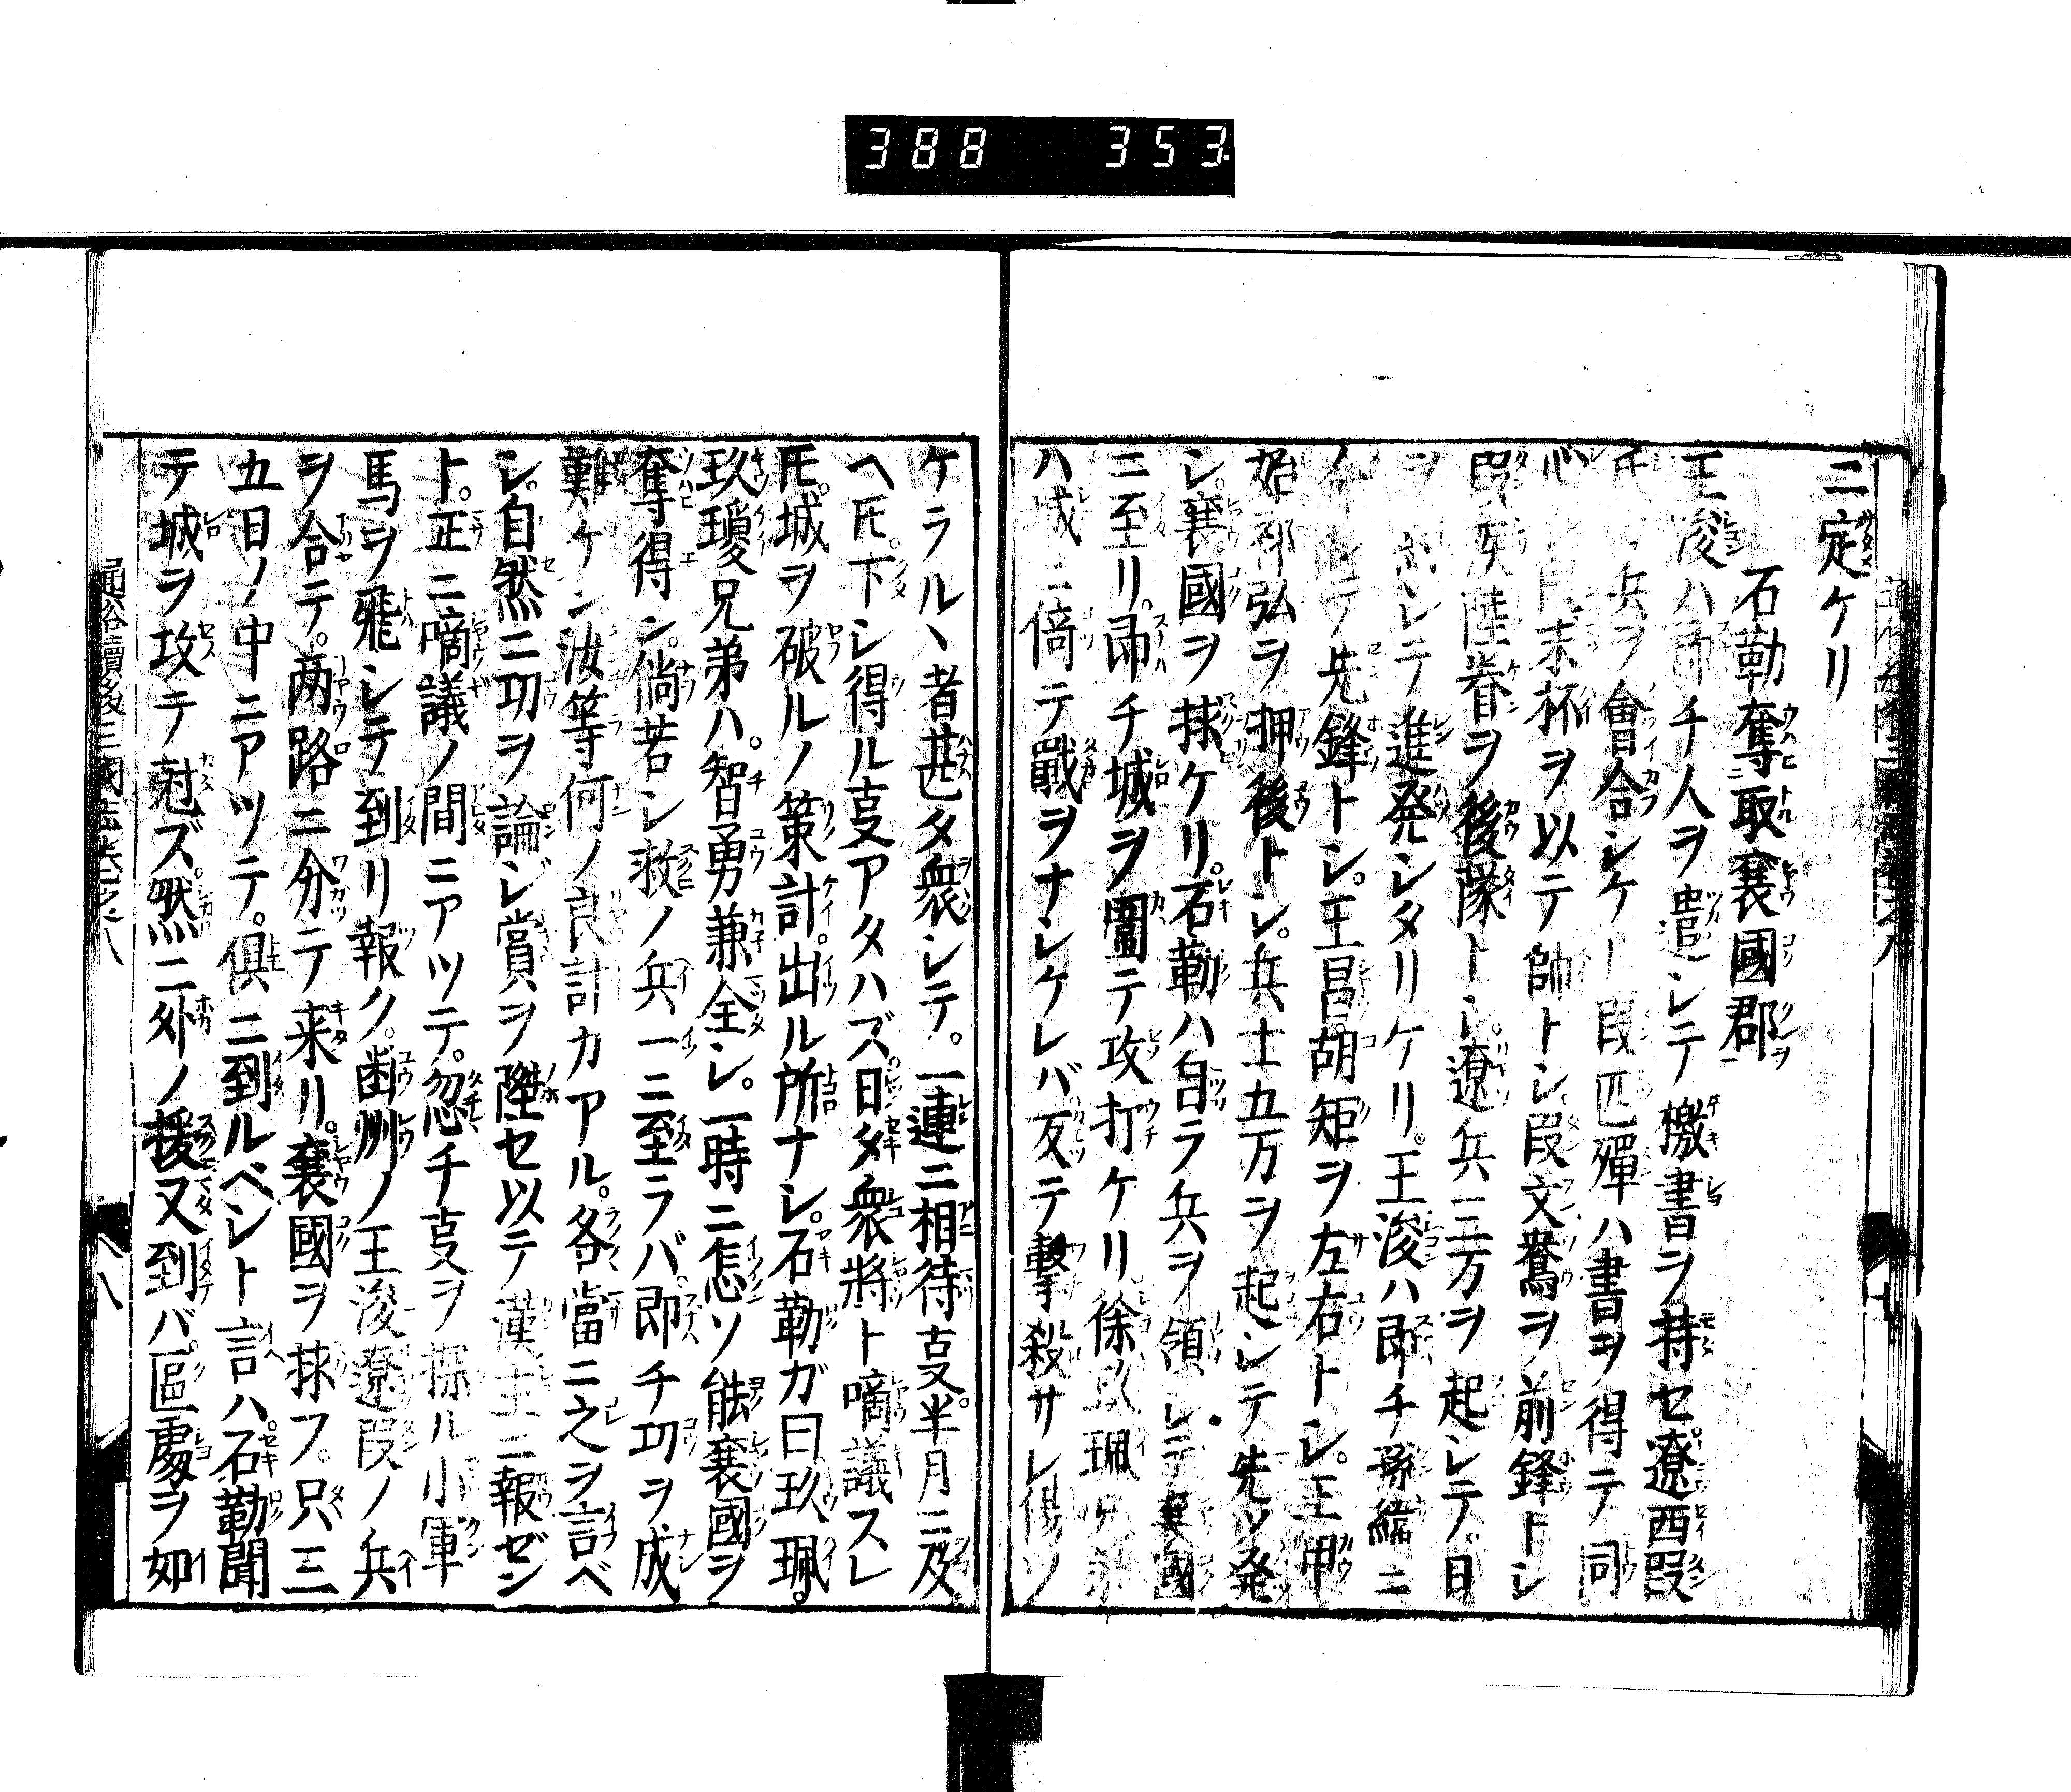 388 353
ニ定ケリ
石勒奪取襄國郡
王浚ハ即チ人ヲ遣シテ檄書ヲ持セ遼西段
氏ノ兵ヲ會合シケー段匹殫ハ書ヲ得テ同
心 末杯ヲ以テ帥トシ段文鴦ヲ前鋒トシ
段疾陸眷ヲ後隊トシ遼兵三万ヲ起シテ目
ヲ シテ進発シタリケリ王浚ハ即チ孫緯ニ
テ先鋒トシ王昌胡矩ヲ左右トシ王甲
始祁弘ヲ押後トシ兵士五万ヲ起シテ先ソ発
シ襄國ヲ救ケリ石勒ハ自ラ兵ヲ領シテ襄國
ニ至リ即チ城ヲ圍テ攻打ケリ徐玖珮
ハ城ニ倚テ戰ヲナシケレバ反テ撃殺サレ傷ソ
ケラルヽ者甚タ衆シテ一連ニ相待㕝半月ニ及
ヘ𪜈下シ得ル㕝アタハズ日夕衆將ト啇議スレ
𪜈城ヲ破ルノ策計出ル所ナシ石勒ガ曰玖珮
玖瓊兄弟ハ智勇兼全シ一時ニ怎ソ能襄國ヲ
奪得ン倘若シ救ノ兵一ニ至ラバ即チ功ヲ成
難ケン汝等何ノ良計カアル各當ニ之ヲ言ベ
シ自然ニ功ヲ論ジ賞ヲ陞セ以テ漢主ニ報ゼン
ト正ニ啇議ノ間ニアツテ忽チ㕝ヲ探ル小軍
馬ヲ飛シテ到リ報ク幽州ノ王浚遼段ノ兵
ヲ合テ両路ニ分テ来リ襄國ヲ救フ只三
五日ノ中ニアツテ俱ニ到ルベシト言ハ石勒聞
テ城ヲ攻テ尅ズ然ニ外ノ援又到バ區處ヲ如
通俗續後三國志巻之八
八